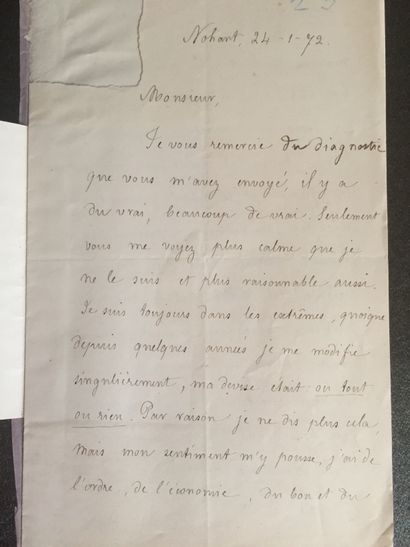 23
Nohant, 24-1-72.
Monsieur,
Je vous remercie du diagnostic
que vous m'avez envoyé, il y a
du vrai, beaucoup de vrai. Seulement
vous me voyez plus calme que je
ne le suis et plus raisonnable aussi.
Je suis toujours dans les extrêmes, quoique
depuis quelques années je me modifie
singulièrement, ma devise était ou tout
ou rien. Par raison je ne dis plus cela,
mais mon sentiment m'y pousse, j'ai de
l'ordre, de l'économie, du bon et du